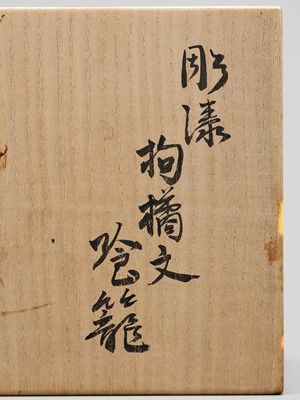 彫漆
拘橘文
喰籠